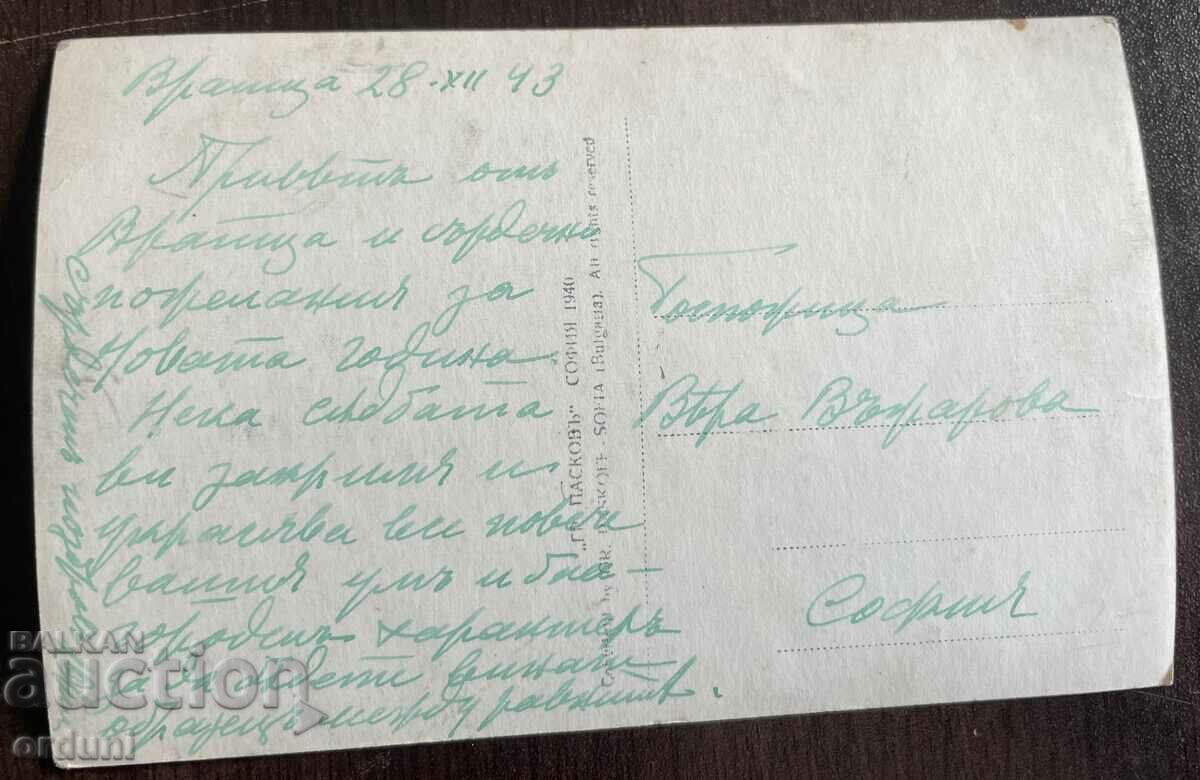 Вратца 28-XII 43
Приветъ отъ
Вратца и сърдечни
пожелания за
Новата година.
Нека съдбата
ви закриля и
украсява все повече
вашия умъ и бла-
городенъ характеръ
за да бъдете винаги
образецъ между
Сърдеченъ поздравъ
"ГР. ПАСКОВЪ" СОФИЯ 1940
GR. PASKOFF - SOFIA (Bulgaria). All rights reserved
Госпожица
Вѣра Въжарова
София
BALKAN
auction
orduni